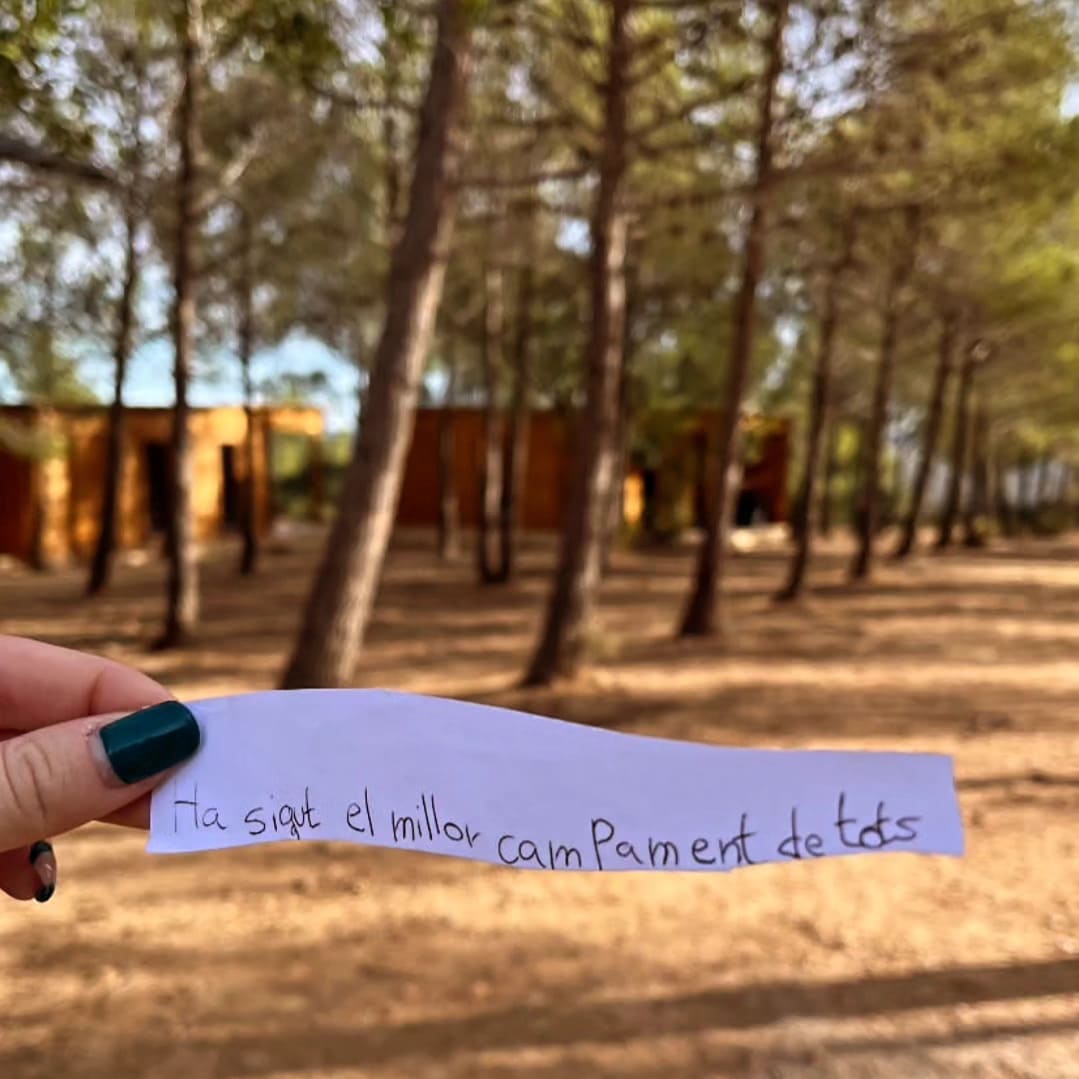 Ha sigut el millor camPament de tots